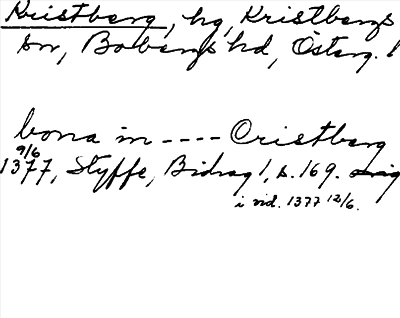 Kristberg, hg, Kristbergs
sn, Bobergs hd, Österg. l
bona in ---- Cristberg
9/6
1377, Styffe, Bidrag 1, s. 169.
i vid. 1377 12/6.